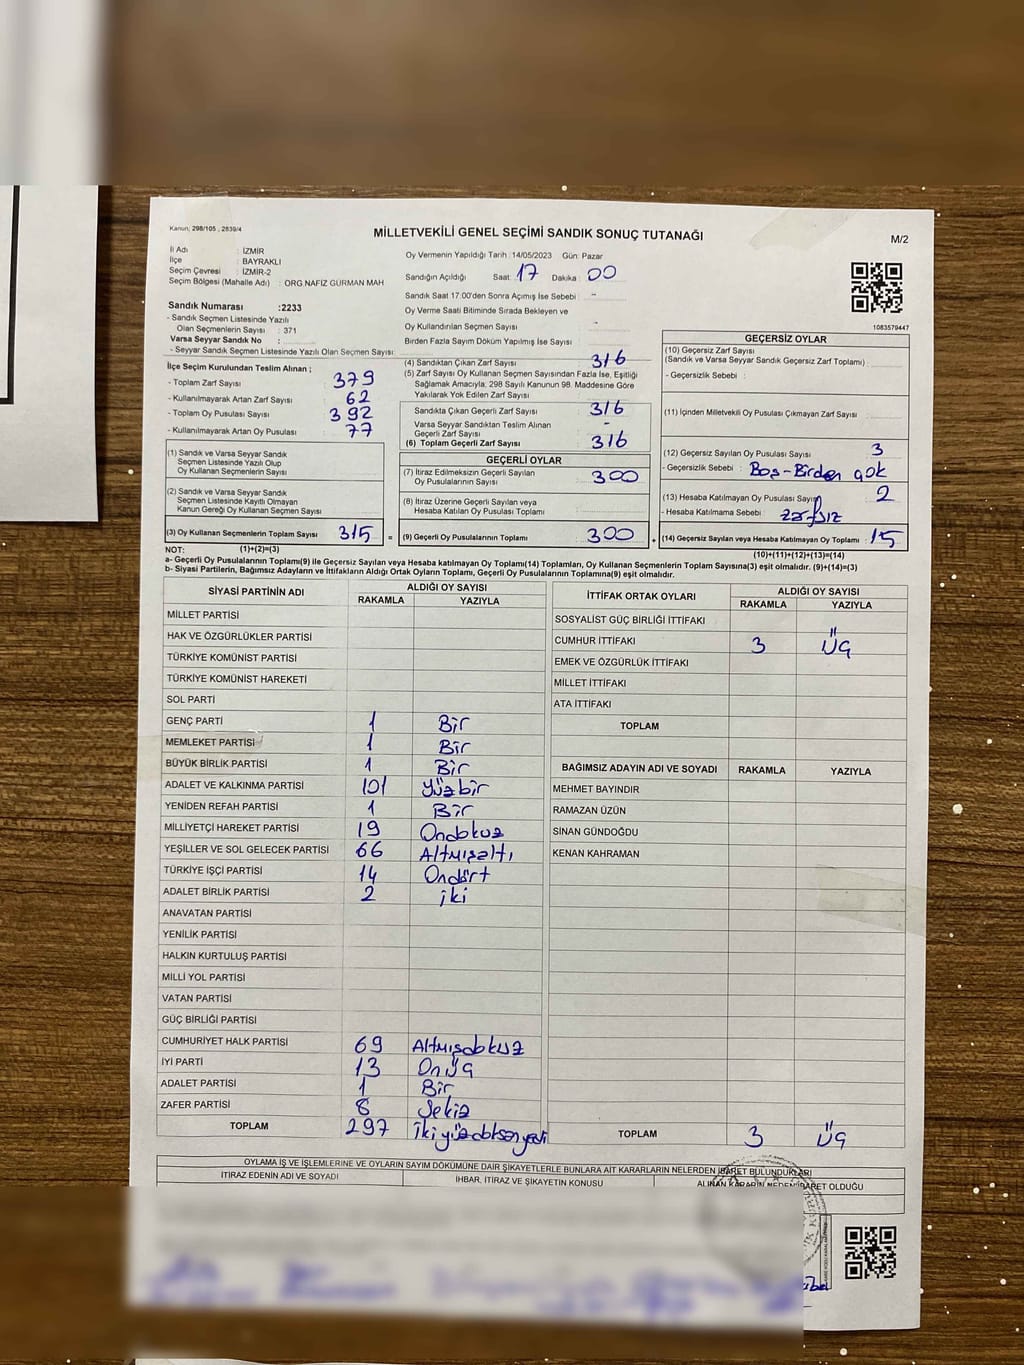 Kanun, 298/105 , 2839/4
MİLLETVEKİLİ GENEL SEÇİMİ SANDIK SONUÇ TUTANAĞI
M/2
İl Adı : İZMİR
İlçe : BAYRAKLI
Seçim Çevresi : İZMİR-2
Seçim Bölgesi (Mahalle Adı) : ORG.NAFİZ GÜRMAN MAH
Oy Vermenin Yapıldığı Tarih :14/05/2023 Gün: Pazar
Sandığın Açıldığı Saat: 17 Dakika: 00
Sandık Saat 17.00'den Sonra Açımış İse Sebebi : -
Oy Verme Saati Bitiminde Sırada Bekleyen ve
Oy Kullandırılan Seçmen Sayısı : -
Birden Fazla Sayım Döküm Yapılmış İse Sayısı :
1083579447
Sandık Numarası :2233
- Sandık Seçmen Listesinde Yazılı
Olan Seçmenlerin Sayısı : 371
Varsa Seyyar Sandık No :
- Seyyar Sandık Seçmen Listesinde Yazılı Olan Seçmen Sayısı:
İlçe Seçim Kurulundan Teslim Alınan ;
- Toplam Zarf Sayısı 379
- Kullanılmayarak Artan Zarf Sayısı 62
- Toplam Oy Pusulası Sayısı 392
- Kullanılmayarak Artan Oy Pusulası 77
(1) Sandık ve Varsa Seyyar Sandık
Seçmen Listesinde Yazılı Olup
Oy Kullanan Seçmenlerin Sayısı
(2) Sandık ve Varsa Seyyar Sandık
Seçmen Listesinde Kayıtlı Olmayan
Kanun Gereği Oy Kullanan Seçmen Sayısı
(3) Oy Kullanan Seçmenlerin Toplam Sayısı 315 =
(4) Sandıktan Çıkan Zarf Sayısı 316
(5) Zarf Sayısı Oy Kullanan Seçmen Sayısından Fazla İse, Eşitliği
Sağlamak Amacıyla; 298 Sayılı Kanunun 98. Maddesine Göre
Yakılarak Yok Edilen Zarf Sayısı
Sandıkta Çıkan Geçerli Zarf Sayısı 316
Varsa Seyyar Sandıktan Teslim Alınan
Geçerli Zarf Sayısı -
(6) Toplam Geçerli Zarf Sayısı 316
GEÇERLİ OYLAR
(7) İtiraz Edilmeksizin Geçerli Sayılan
Oy Pusulalarının Sayısı 300
(8) İtiraz Üzerine Geçerli Sayılan veya
Hesaba Katılan Oy Pusulası Toplamı
(9) Geçerli Oy Pusulalarının Toplamı 300 +
GEÇERSİZ OYLAR
(10) Geçersiz Zarf Sayısı
(Sandık ve Varsa Seyyar Sandık Geçersiz Zarf Toplamı) :
- Geçersizlik Sebebi :
(11) İçinden Milletvekili Oy Pusulası Çıkmayan Zarf Sayısı:
(12) Geçersiz Sayılan Oy Pusulası Sayısı 3
- Geçersizlik Sebebi : Boş-Birden çok
(13) Hesaba Katılmayan Oy Pusulası Sayısı 2
- Hesaba Katılmama Sebebi : zarfsız
(14) Geçersiz Sayılan veya Hesaba Katılmayan Oy Toplamı : 15
NOT: (1)+(2)=(3)
(10)+(11)+(12)+(13)=(14)
a- Geçerli Oy Pusulalarının Toplamı(9) ile Geçersiz Sayılan veya Hesaba katılmayan Oy Toplamı(14) Toplamları, Oy Kullanan Seçmenlerin Toplam Sayısına(3) eşit olmalıdır. (9)+(14)=(3)
b- Siyasi Partilerin, Bağımsız Adayların ve İttifakların Aldığı Ortak Oyların Toplamı, Geçerli Oy Pusulalarının Toplamına(9) eşit olmalıdır.
SİYASİ PARTİNİN ADI ALDIĞI OY SAYISI
RAKAMLA YAZIYLA
MİLLET PARTİSİ
HAK VE ÖZGÜRLÜKLER PARTİSİ
TÜRKİYE KOMÜNİST PARTİSİ
TÜRKİYE KOMÜNİST HAREKETİ
SOL PARTİ
GENÇ PARTİ 1 Bir
MEMLEKET PARTİSİ 1 Bir
BÜYÜK BİRLİK PARTİSİ 1 Bir
ADALET VE KALKINMA PARTİSİ 101 Yüzbir
YENİDEN REFAH PARTİSİ 1 Bir
MİLLİYETÇİ HAREKET PARTİSİ 19 Ondokuz
YEŞİLLER VE SOL GELECEK PARTİSİ 66 Altmışaltı
TÜRKİYE İŞÇİ PARTİSİ 14 Ondört
ADALET BİRLİK PARTİSİ 2 iki
ANAVATAN PARTİSİ
YENİLİK PARTİSİ
HALKIN KURTULUŞ PARTİSİ
MİLLİ YOL PARTİSİ
VATAN PARTİSİ
GÜÇ BİRLİĞİ PARTİSİ
CUMHURİYET HALK PARTİSİ 69 Altmışdokuz
İYİ PARTİ 13 Onüç
ADALET PARTİSİ 1 Bir
ZAFER PARTİSİ 8 Sekiz
TOPLAM 297 ikiyüzdoksanyedi
İTTİFAK ORTAK OYLARI ALDIĞI OY SAYISI
RAKAMLA YAZIYLA
SOSYALİST GÜÇ BİRLİĞİ İTTİFAKI
CUMHUR İTTİFAKI 3 Üç
EMEK VE ÖZGÜRLÜK İTTİFAKI
MİLLET İTTİFAKI
ATA İTTİFAKI
TOPLAM
BAĞIMSIZ ADAYIN ADI VE SOYADI RAKAMLA YAZIYLA
MEHMET BAYINDIR
RAMAZAN ÜZÜN
SİNAN GÜNDOĞDU
KENAN KAHRAMAN
TOPLAM 3 Üç
OYLAMA İŞ VE İŞLEMLERİNE VE OYLARIN SAYIM DÖKÜMÜNE DAİR ŞİKAYETLERLE BUNLARA AİT KARARLARIN NELERDEN İBARET BULUNDUKLARI
İTİRAZ EDENİN ADI VE SOYADI İHBAR, İTİRAZ VE ŞİKAYETİN KONUSU ALINAN KARARIN NEDEN İBARET OLDUĞU